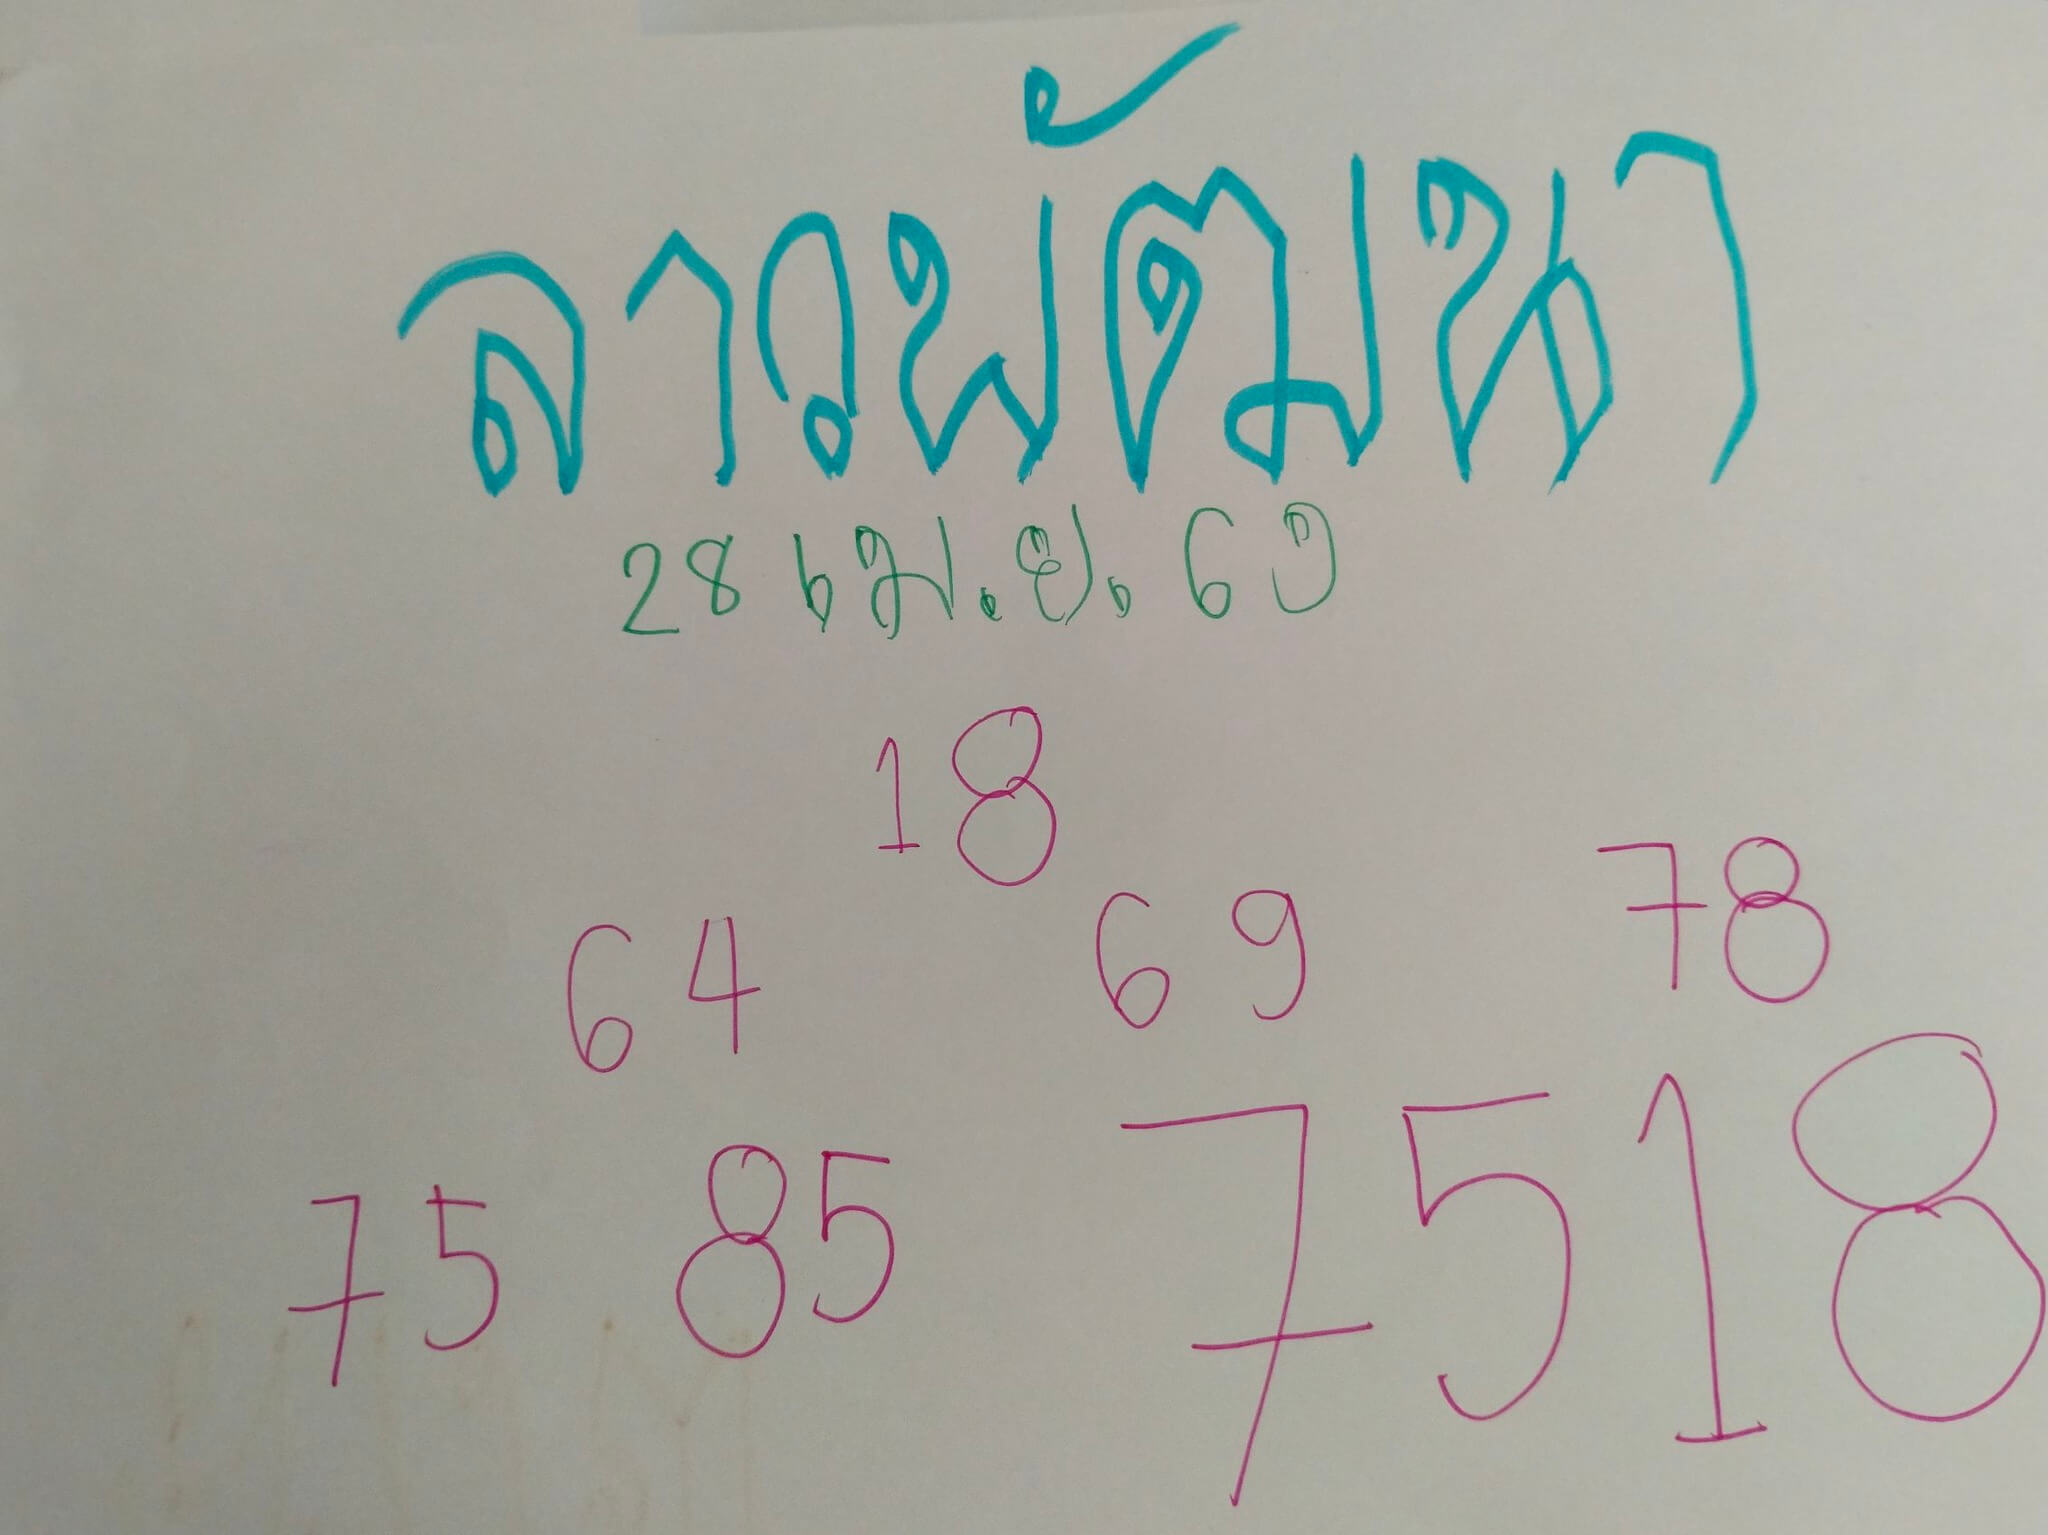 ลาวพัฒนา
28 เม.ย. 69
18
64 69 78
75 85 7518